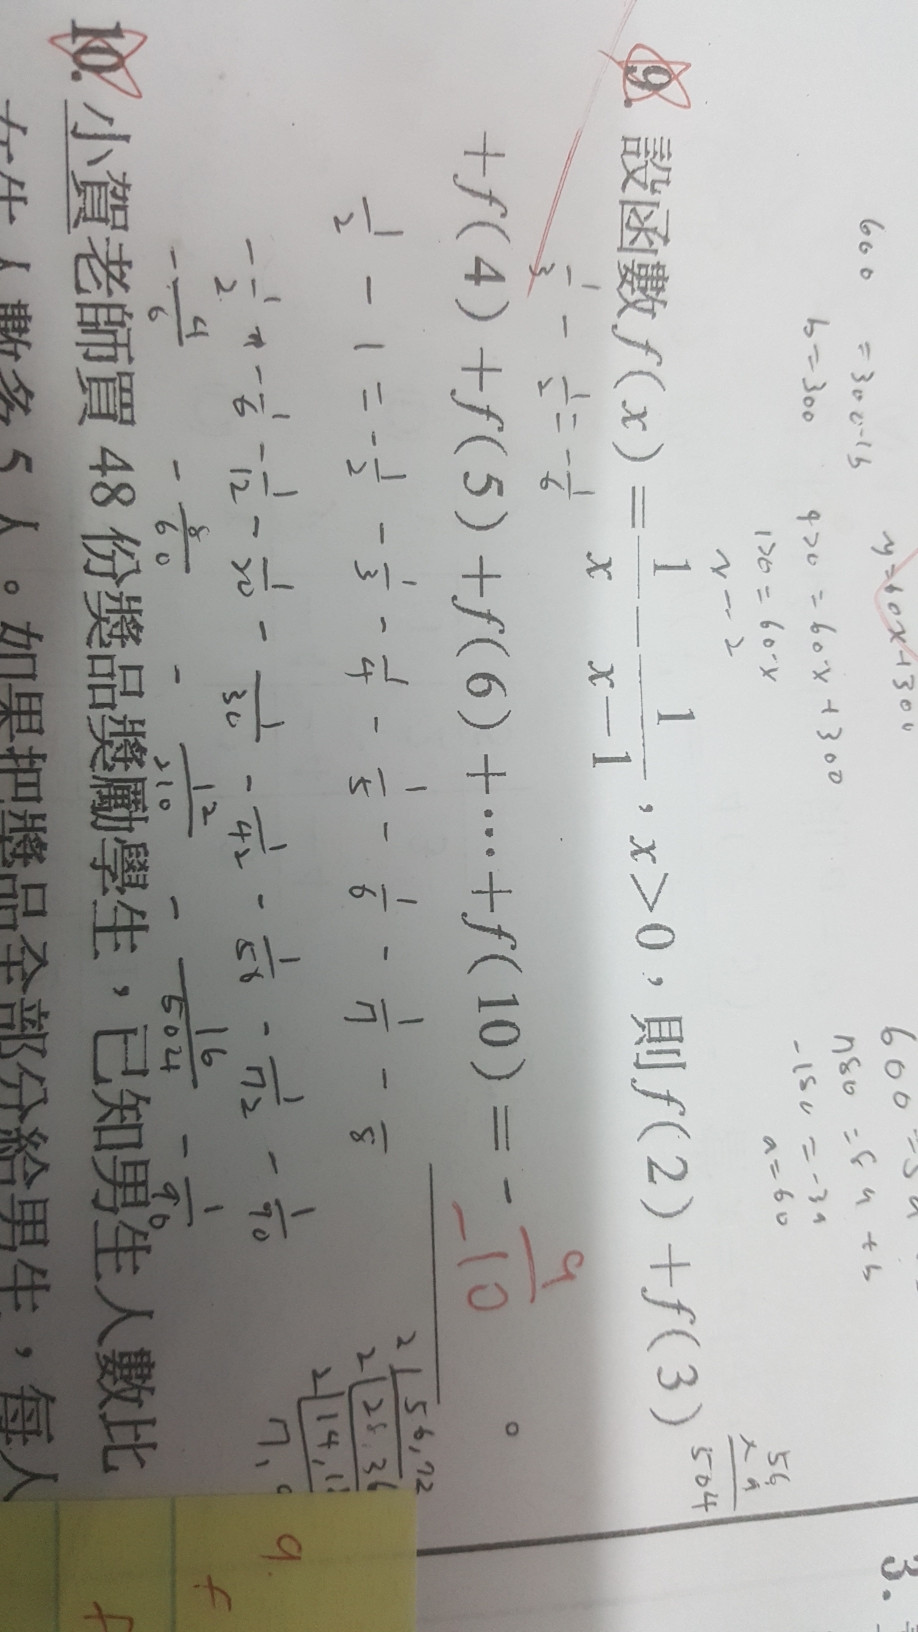 600 = 300-15
b=300
y=60x+300
420=60x+300
120=60x
x=2
780=5a+b
-180=-3a
a=60
3.
9. 設函數 f(x)=1/x-1/(x-1),x>0,則 f(2)+f(3)
1/3-1/2=-1/6
56
×9
504
+f(4)+f(5)+f(6)+⋯+f(10)=-9/10。
-10
1/2-1=-1/2-1/3-1/4-1/5-1/6-1/7-1/8
2 56,72
2 28,36
2 14,18
7,9
-1/2+-1/6-1/12-1/20-1/30-1/42-1/56-1/72-1/90
-4/6-8/60-12/210-16/504-1/90
10. 小賀老師買 48 份獎品獎勵學生,已知男生人數比
女生人數多 5 人。如果把獎品全部分給男生,每人
9